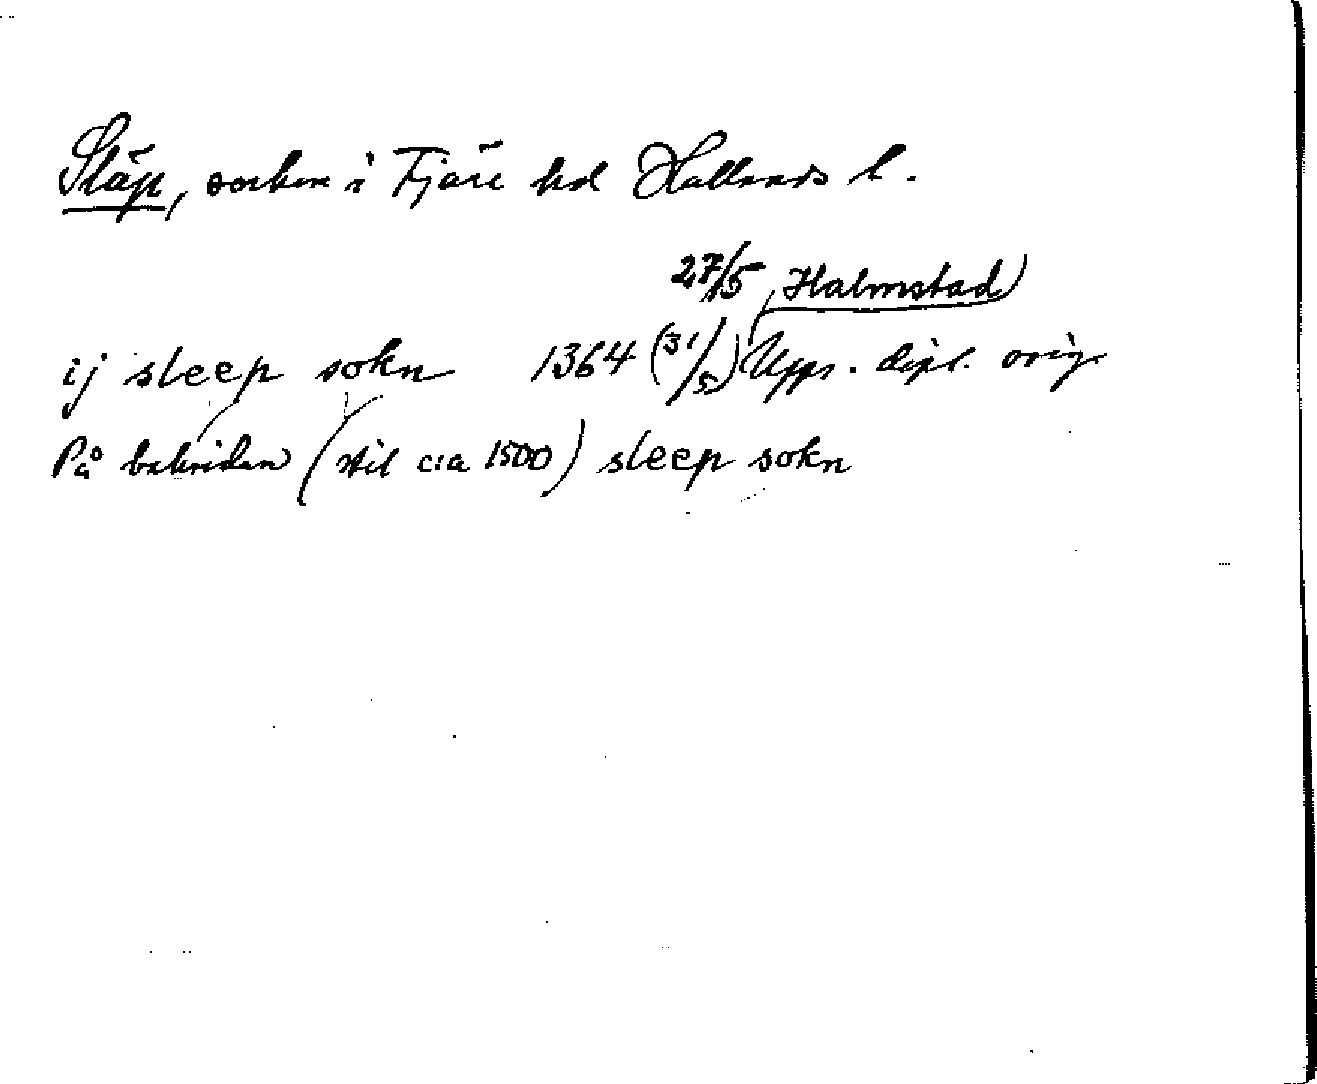 Släp, socken i Fjäre hd Hallands l.
27/5 Halmstad
ij sleep sokn 1364 (31/5) Upps. dipl. orig.
På baksidan (stil c:a 1500) sleep sokn